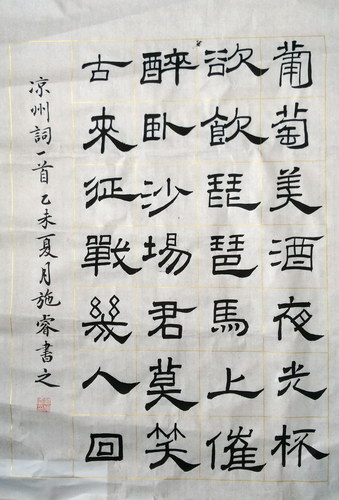 葡萄美酒夜光杯
欲飲琵琶馬上催
醉卧沙場君莫笑
古來征戰幾人回
凉州詞一首乙未夏月施睿書之